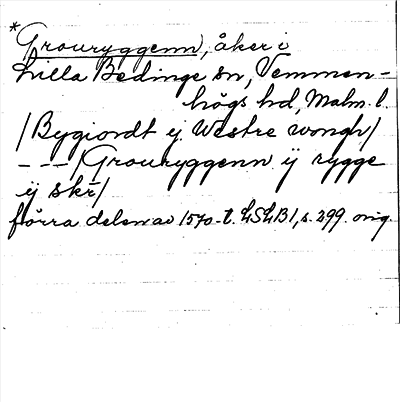 *Grouryggenn, åker i
Lilla Bedinge sn, Vemmen-
högs hd, Malm. l.
/Bygiordt ij Westre wongh/
---/Grouryggenn ÿ rygge
ij skr̄/
förra delen av 1570-t. LSLB1, s. 299. orig.